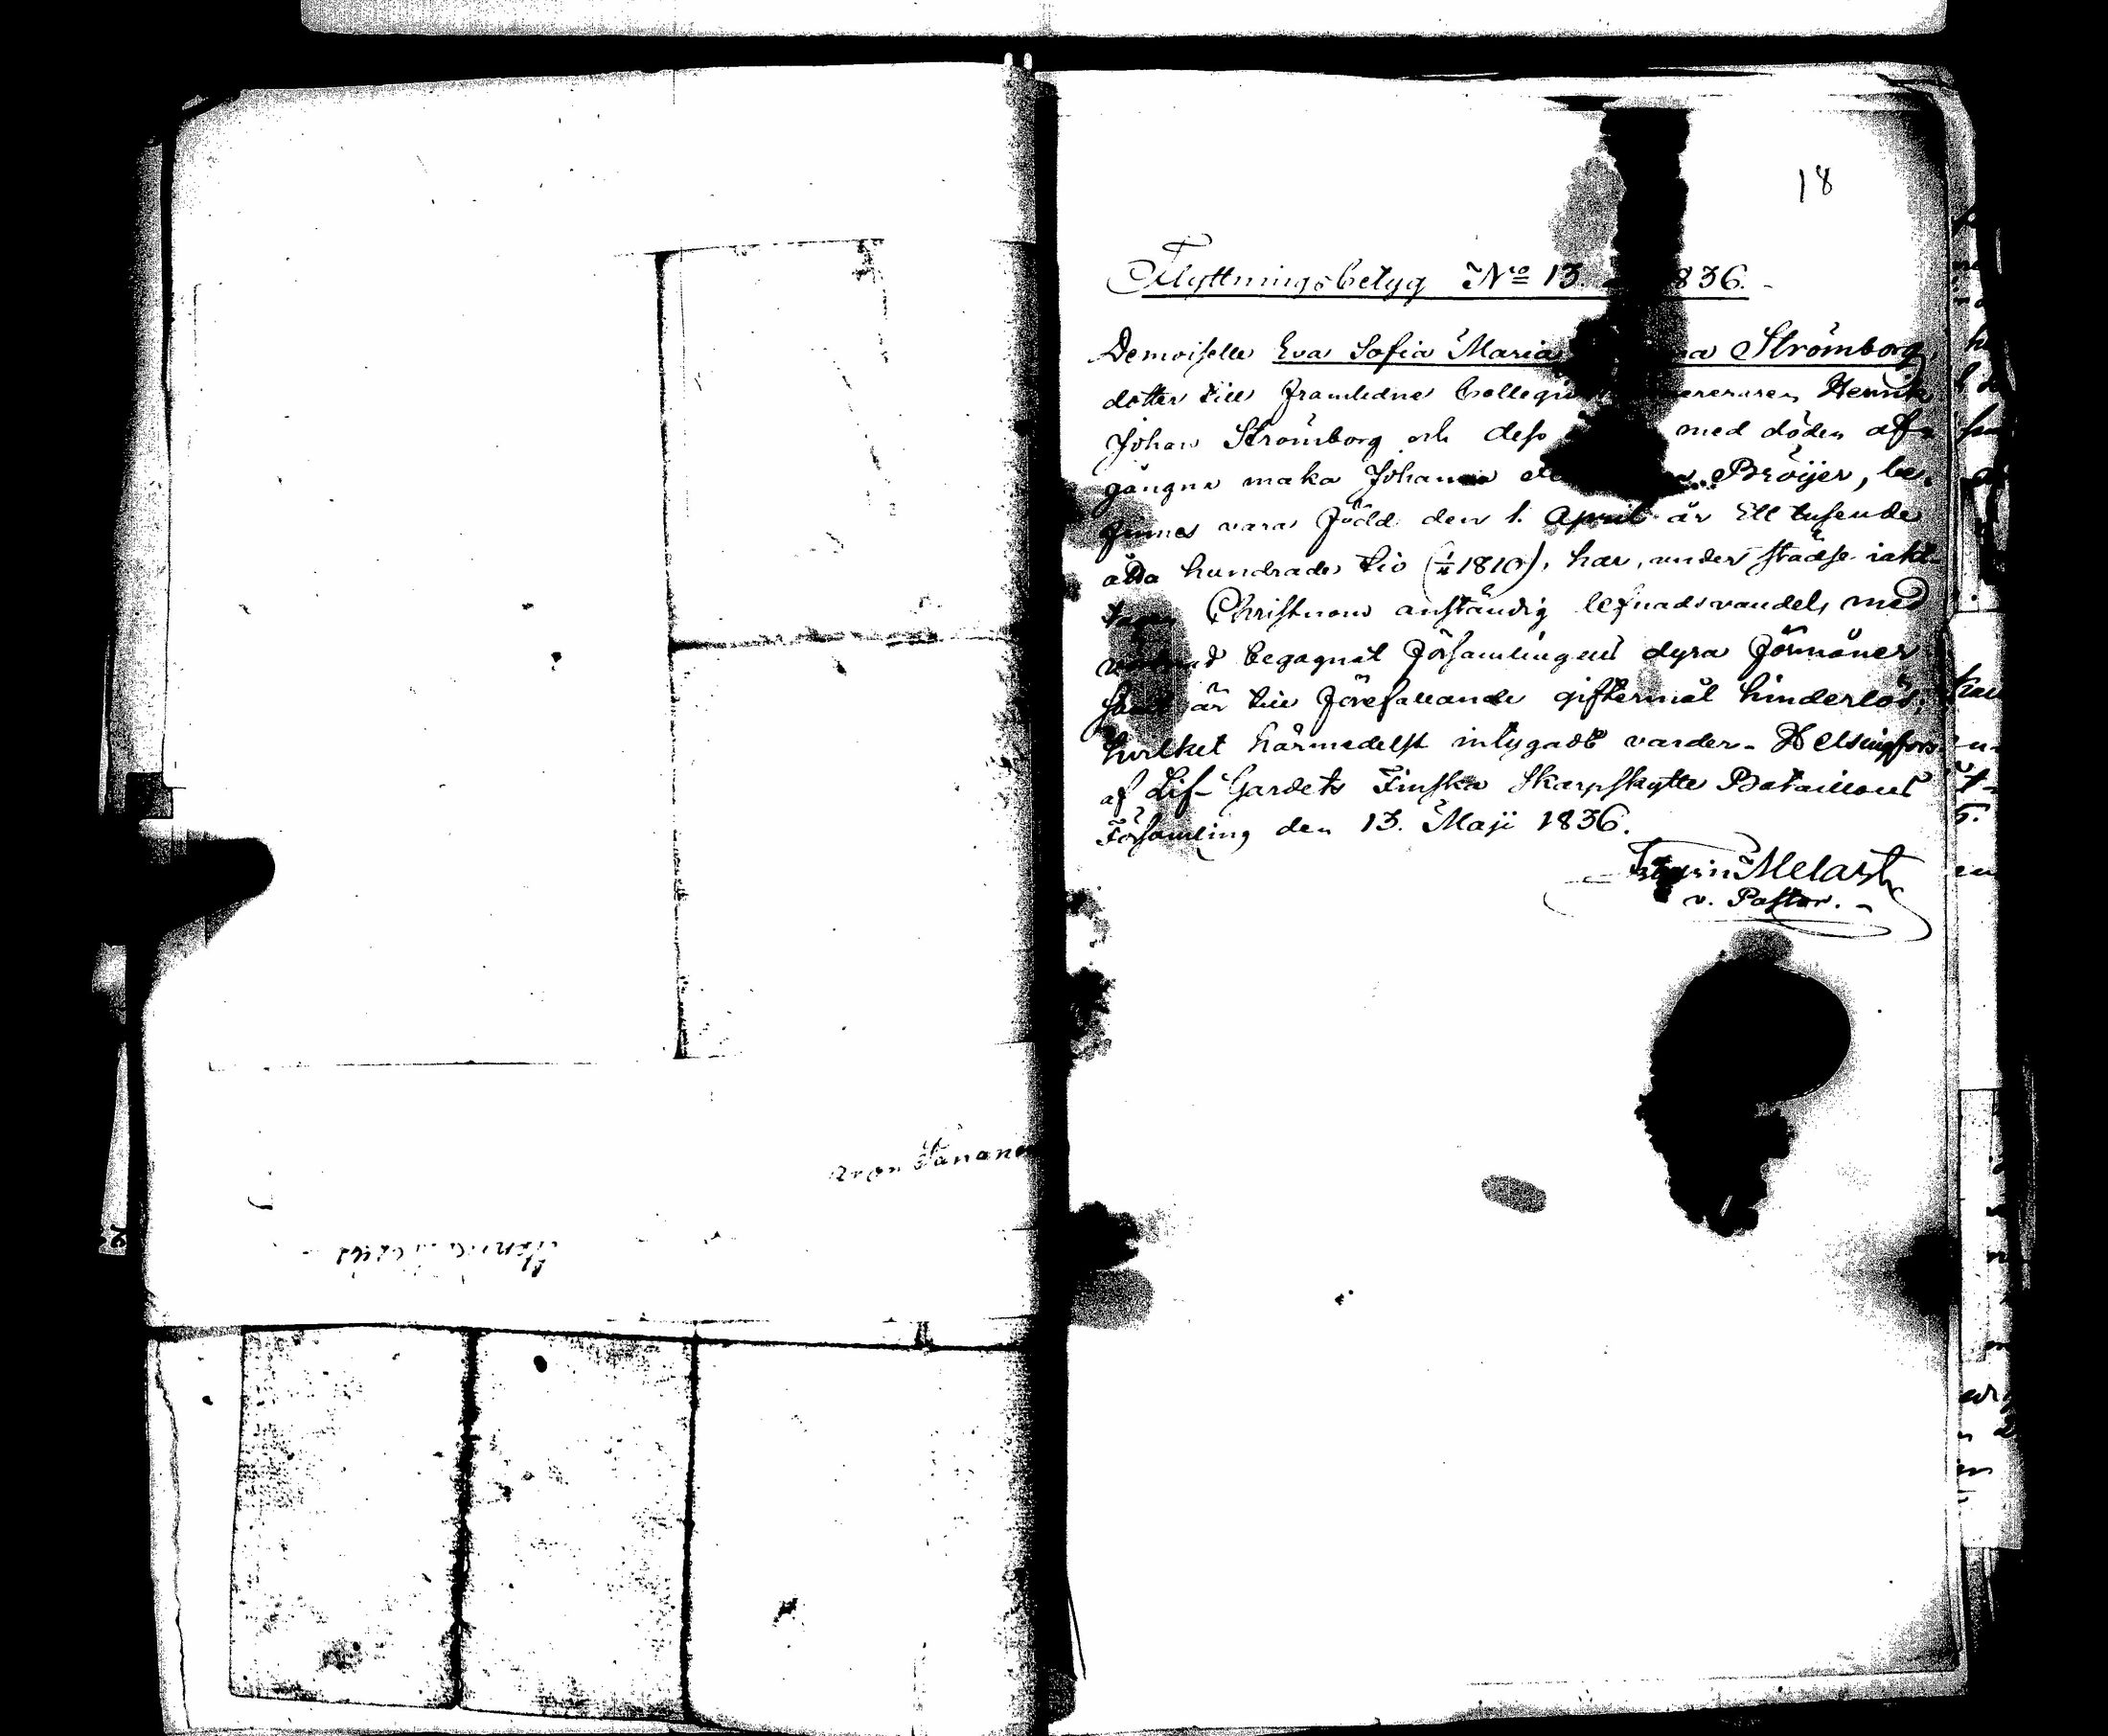 18
Flyttningsbetyg No 13. 836.
Demoiselle Eva Sofia Maria Strömborg,
dotter till framledne Henrik
Johan Strömborg och dess med döden af-
gångne maka Johanna Bröijer, be-
finnes vara född den 1. April år Ett tusende
åtta hundrade tio (1/4 1810), har, under städse iakt-
tagen Christnom anständig lefnadsvandel, med
begagnat Församlingens dyra förmåner
samt är till förefallande giftermål hinderlös;
hvilket härmedelst intygadt varder. Helsingfors
af Lif-Gardets Finska Skarpskytte Bataillons
Församling den 13. Maji 1836.
Melart
v. Pastor.